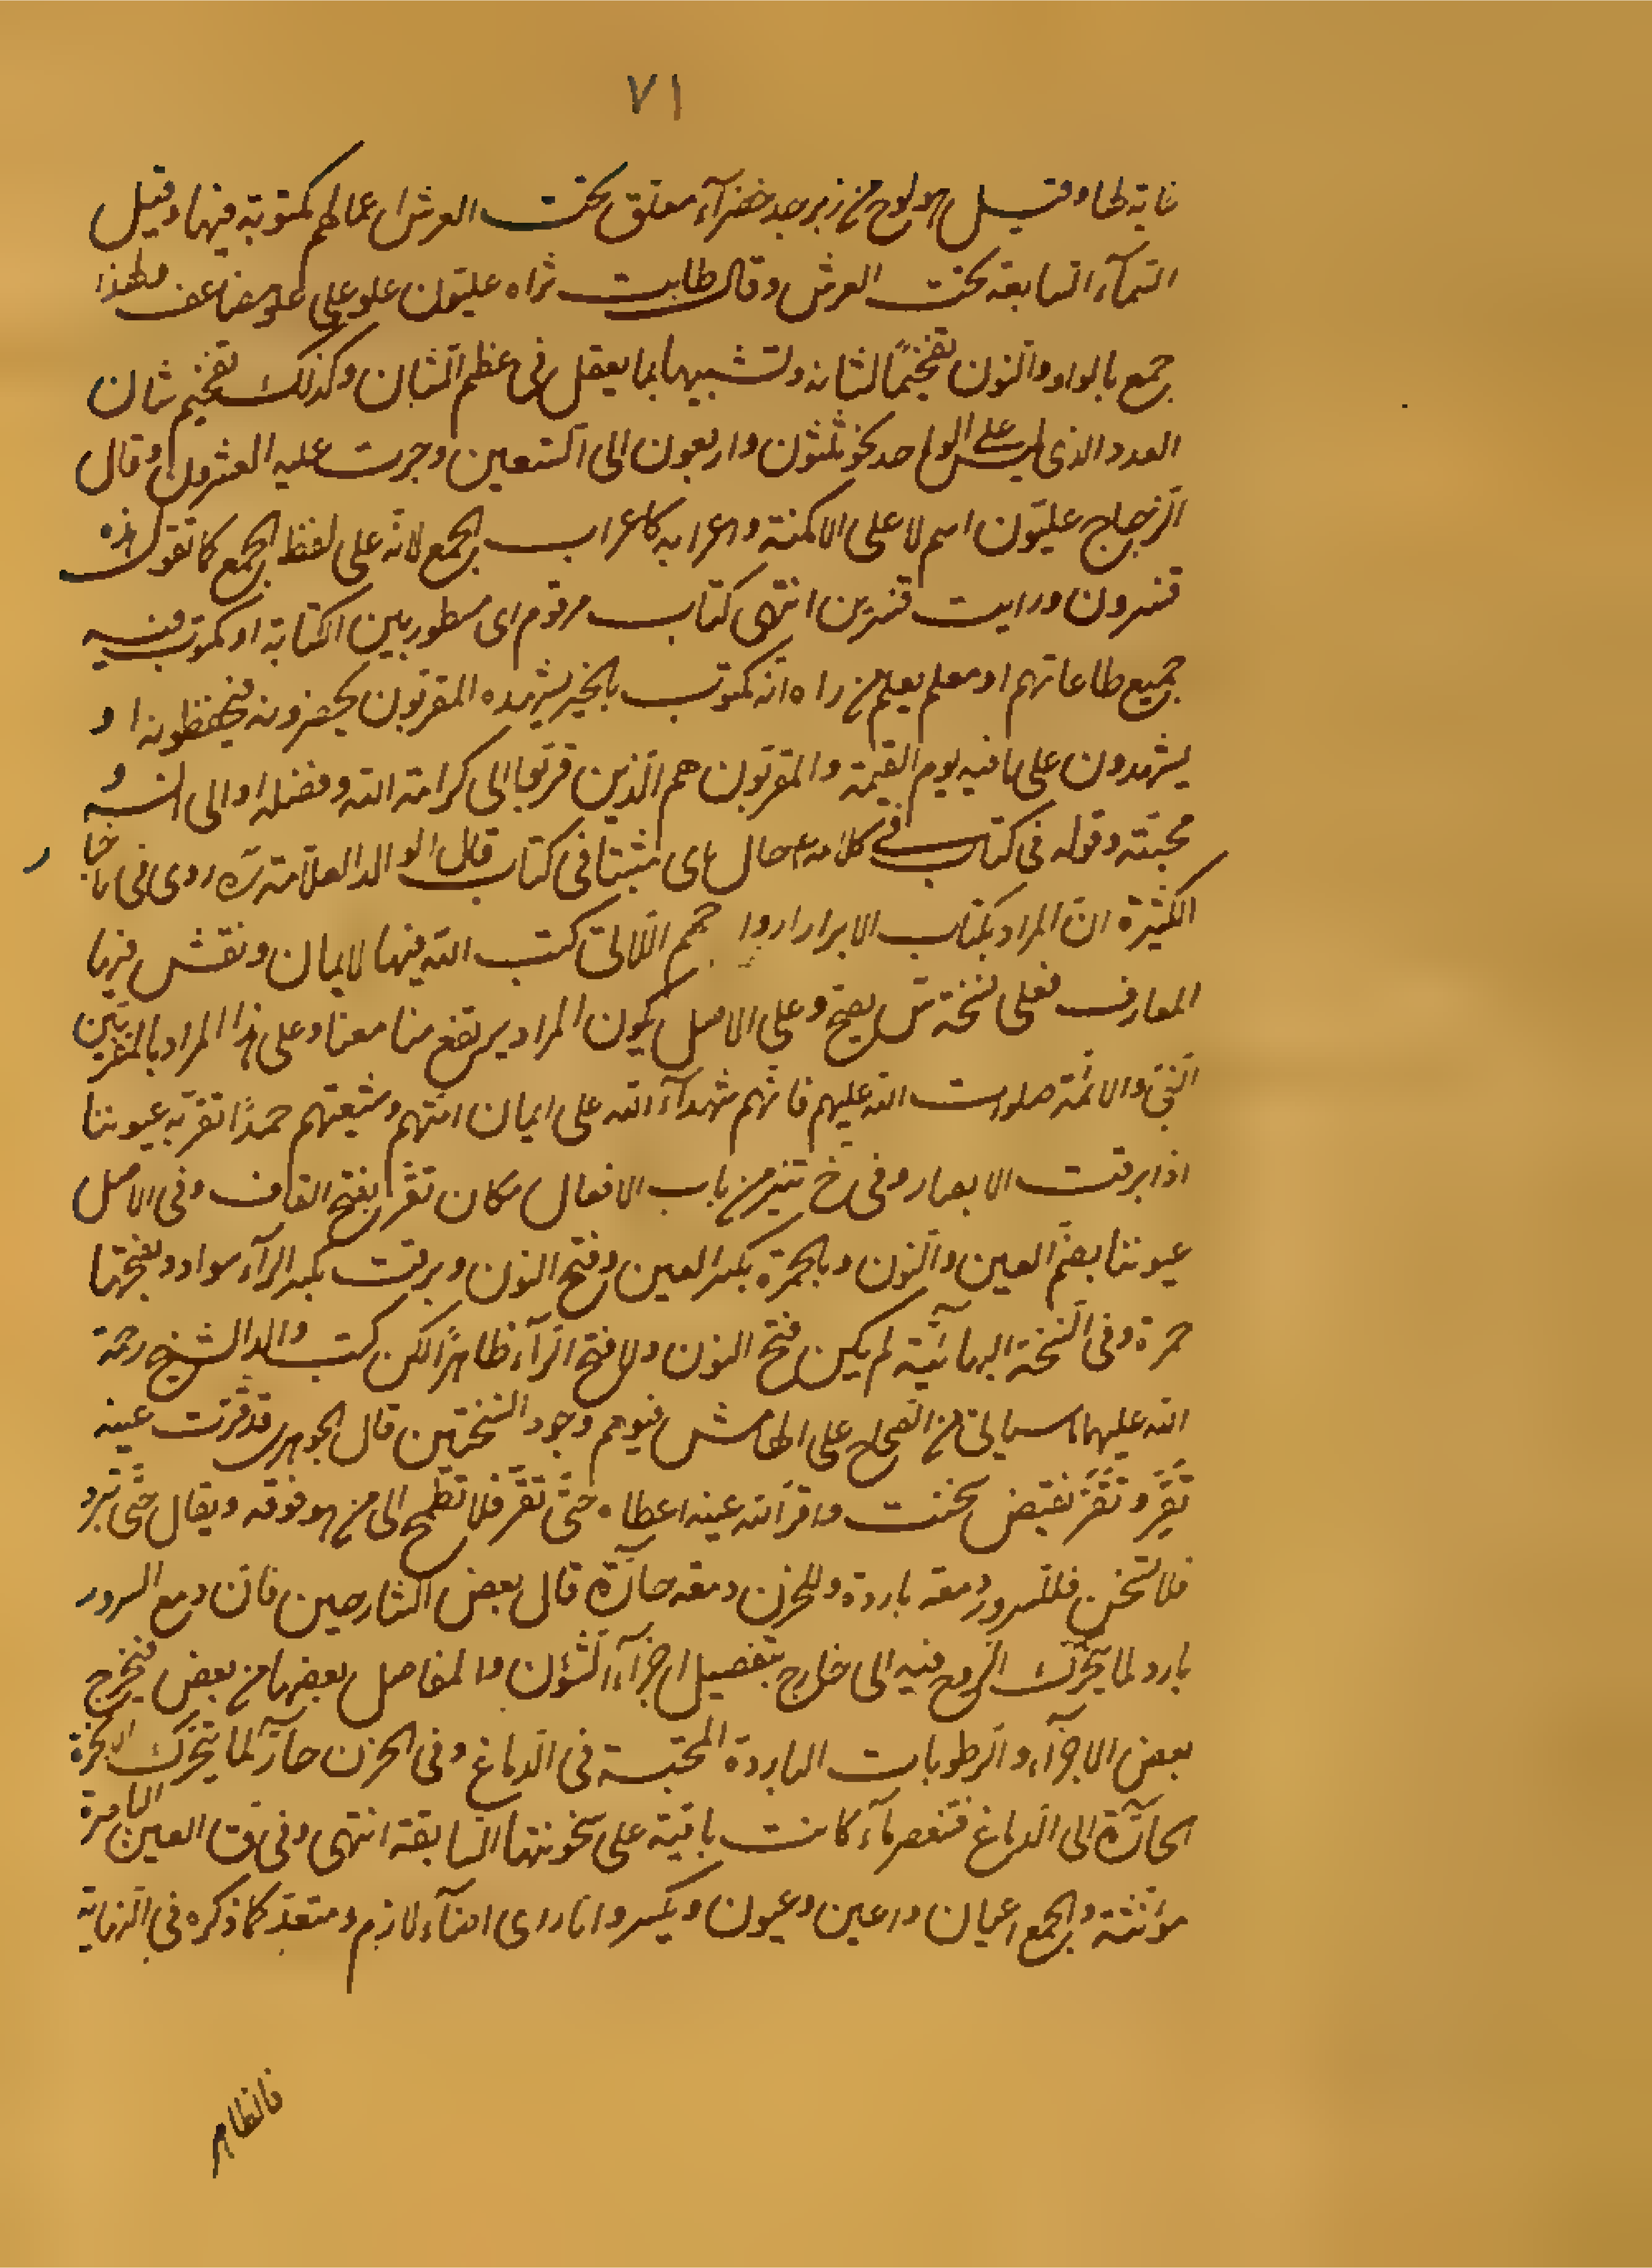 ٧١
غاية لها وقيل هو لوح من زبرجد خضرآء معلق تحت العرش اعمالهم مكتوبة فيها وقيل
السمآء السابعة تحت العرش وقال طابت ثراه عليون علو على علو مضاعف ولهذا
جمع بالواو والنون تفخيمًا لشانه وتشبيها بما يعقل فى عظم الشان وكذلك تفخيم شان
العدد الذى ليس على الواحد نحو ثلثون واربعون الى التسعين وجرت عليه العشرون وقال
الزجاج عليون اسم لا على الامكنة واعرابه كاعراب الجمع لانه على لفظ الجمع كما تقول هذه
قنسرون ورايت قنسرين انتهى كتاب مرقوم اى مسطور بين الكتابة او مكتوب فيه
جميع طاعاتهم او معلم يعلم من راه انه مكتوب بالخير يشهده المقربون يحضرونه فيحفظونه او
يشهدون على ما فيه يوم القيمة والمقربون هم الذين قربوا الى كرامة الله وفضله او الى انسه و
محبته وقوله فى كتاب فى كلامه ع حال اى مثبتا فى كتاب قال الوالد العلامة روى فى الاخبار
الكثيرة ان المراد بكتاب الابرار ارواحهم اللاتى كتب الله فيها الايمان ونقش فيها
المعارف فعلى نسخة س يصح وعلى الاصل يكون المراد يرتفع منا معنا وعلى هذا المراد بالمقربين
النبى والائمة صلوات الله عليهم فانهم شهدآء الله على ايمان امتهم وشيعتهم حمدًا تقر به عيوننا
اذا برقت الابصار وفى خ تنير من باب الافعال مكان تقر بفتح القاف وفى الاصل
عيوننا بضم العين والنون وبالحمرة بكسر العين وفتح النون وبرقت بكسر الرآء سواد وبفتحها
حمرة وفى النسخة البهائية لم يكن فتح النون ولا فتح الرآء ظاهرًا لكن كتب والد الشيخ رحمة
الله عليهما ما سياتى من الصحاح على الهامش فيوهم وجود النسختين قال الجوهرى قد قرت عينه
تقر وتقر نقيض سخنت واقر الله عينه اعطاه حتى تقر فلا تطمح الى من هو فوقه ويقال حتى تبرد
فلا تسخن فللسرور دمعة باردة وللحزن دمعة حارة قال بعض الشارحين فان دمع السرور
بارد لما يتحرك الروح فيه الى خارج بتفصيل اجزآء الشؤن والمفاصل بعضها من بعض فيخرج
بعض الاجزآء والرطوبات الباردة المحتبسة فى الدماغ وفى الحزن حار لما يتحرك الابخرة
الحارة الى الدماغ فتنعصر مآء كانت باقية على سخونتها السابقة انتهى وفى ق العين الباصرة
مؤنثة والجمع اعيان واعين وعيون ويكسر وانار اى اضآء لازم ومتعد كما ذكره فى النهاية
فالظاهر